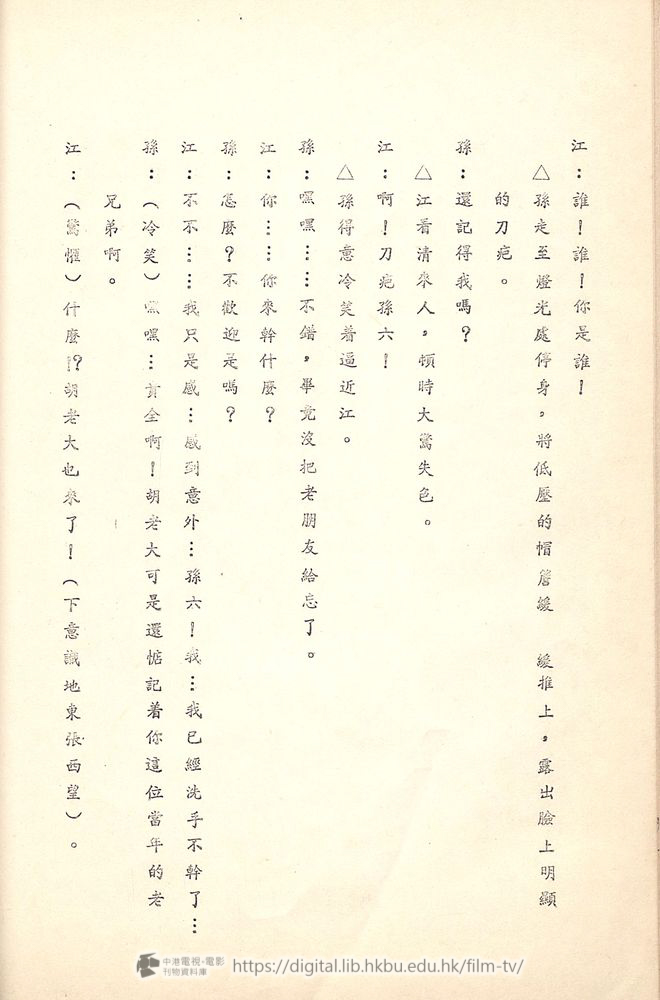 江：誰！誰！你是誰！
△孫走至燈光處停身，將低壓的帽簷緩　緩推上，露出臉上明顯
的刀疤。
孫：還記得我嗎？
△江看清來人，頓時大驚失色。
江：啊！刀疤孫六！
△孫得意冷笑着逼近江。
孫：嘿嘿……不錯，畢竟沒把老朋友給忘了。
江：你……你來幹什麼？
孫：怎麼？不歡迎是嗎？
江：不不……我只是感…感到意外…孫六！我…我已經洗手不幹了…
孫：（冷笑）嘿嘿…貢全啊！胡老大可是還惦記着你這位當年的老
兄弟啊。
江：（驚懼）什麼！？胡老大也來了！（下意識地東張西望）。
中港電視·電影
刊物資料庫
https://digital.lib.hkbu.edu.hk/film-tv/